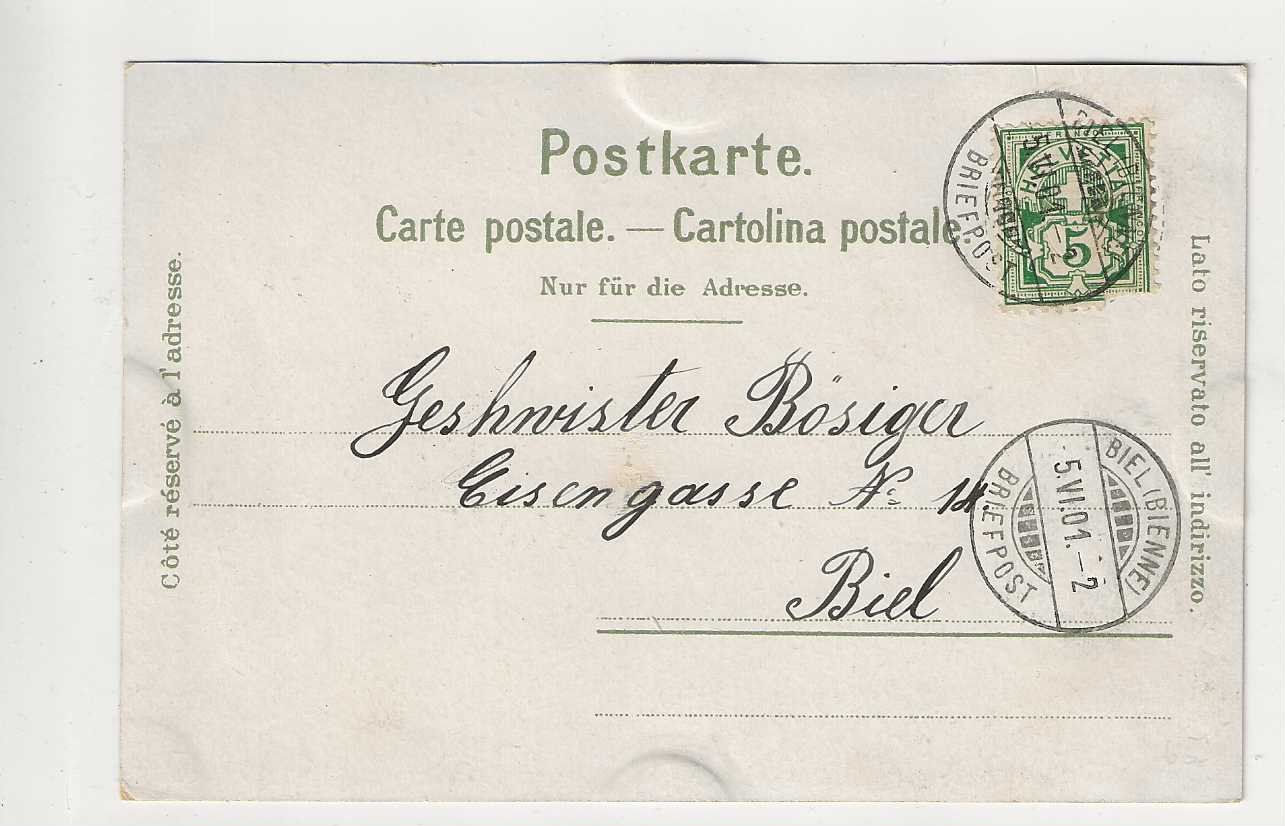 Postkarte.
Carte postale. — Cartolina postale.
Nur für die Adresse.
Côté réservé à l'adresse.
Lato riservato all' indirizzo.
HELVETIA
5
BRIEFPOST
Geshwister Bösiger
Eisengasse No 14.
Biel
BIEL (BIENNE)
5.VI.01.-2
BRIEFPOST